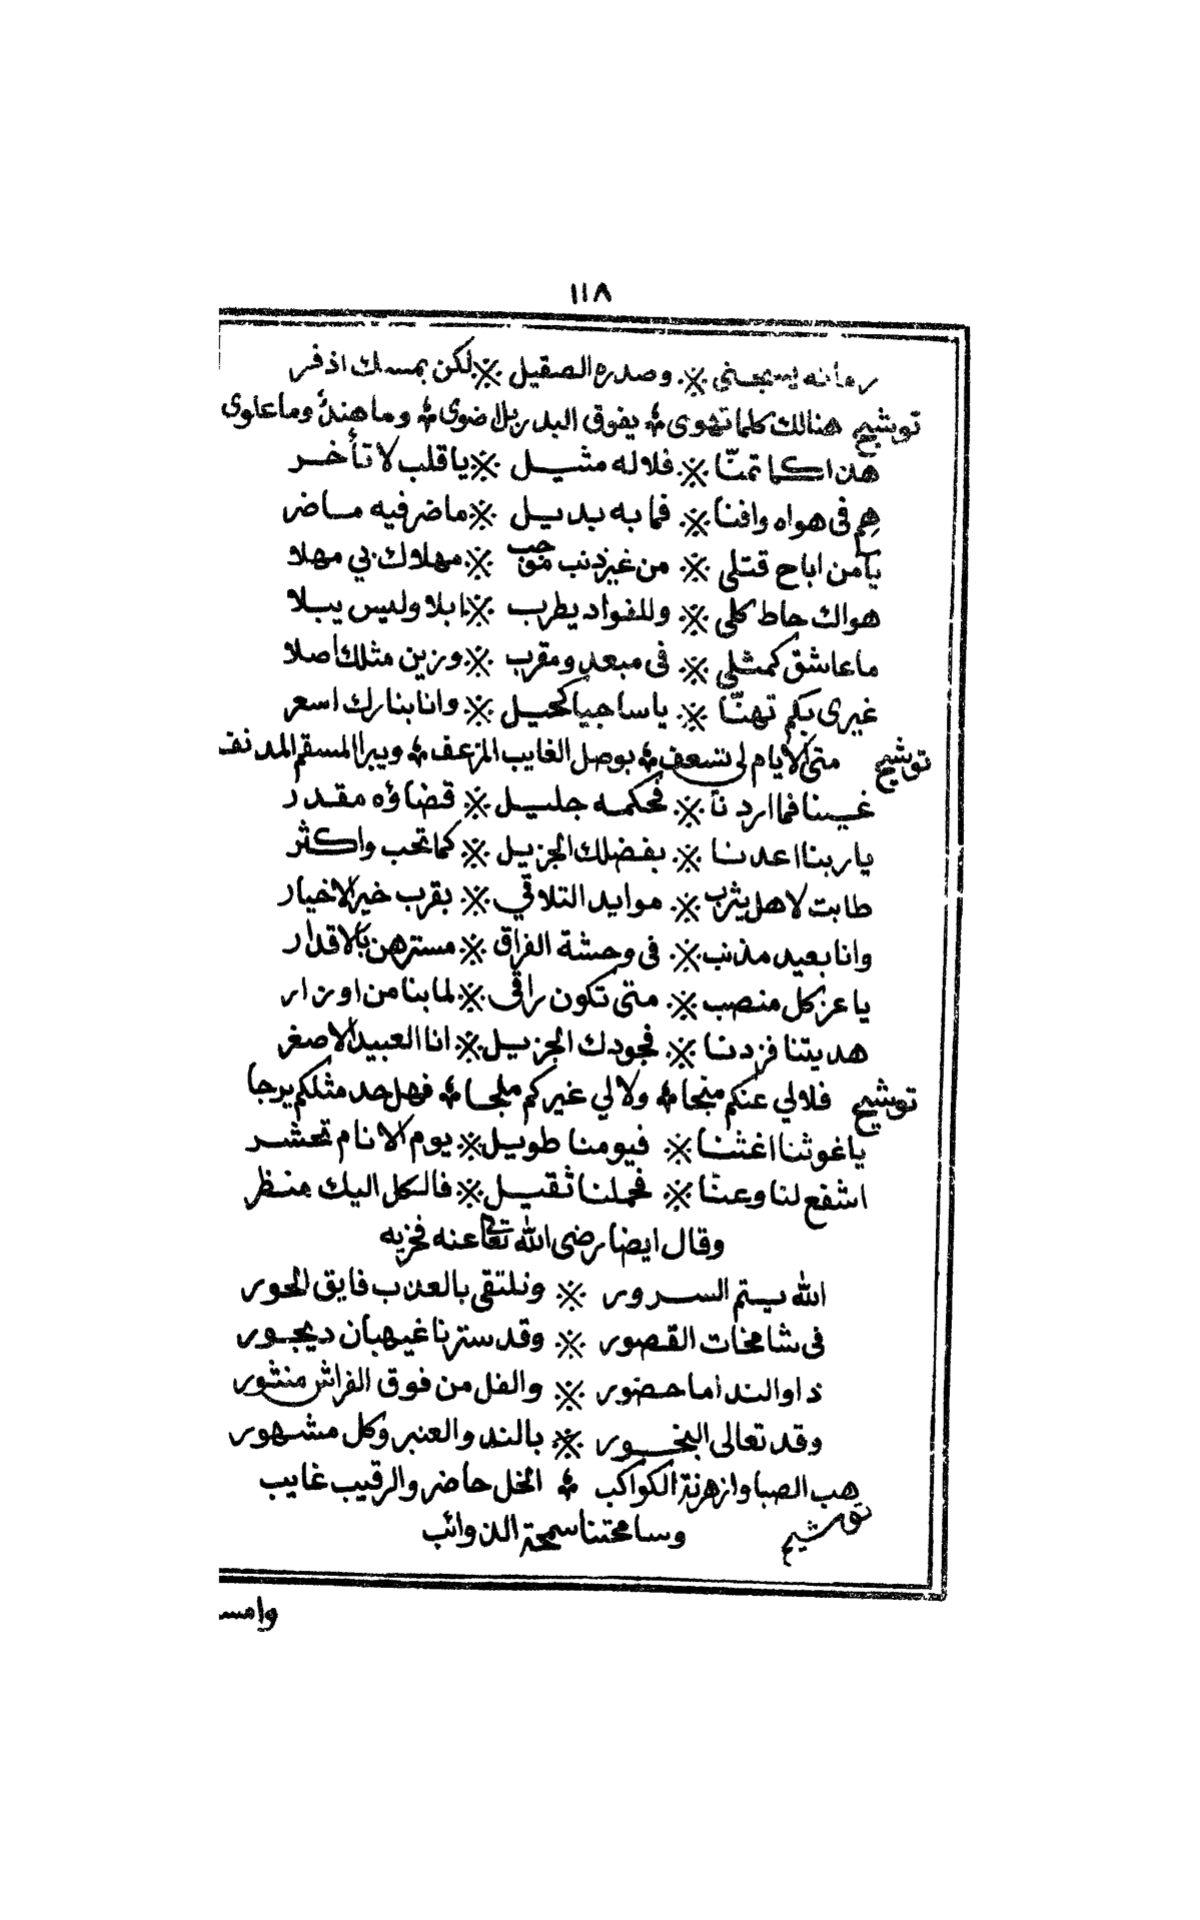 ١١٨
رمانه يستجني ※ وصدره الصقيل ※ لكن بمسك اذفر
توشيح هنالك كلما تهوى ؛ يفوق البدر بل اضوى ؛ وما هند وما علوى
هذا كما تمنّا ※ فلا له مثيل ※ يا قلب لا تأخر
هم فى هواه وافنا ※ فما به بديل ※ ما ضر فيه ماضر
يا من اباح قتلى ※ من غير ذنب موجب ※ مهلاك بي مهلا
هواك حاط كلى ※ وللفواد يطرب ※ ابلا وليس يبلا
ما عاشق كمثلى ※ فى مبعد ومقرب ※ وزين مثلك اصلا
غيرى بكم تهنّا ※ يا ساجيا كحيل ※ وانا بنارك اسعر
توشيح متى الايام لى تسعف ؛ بوصل الغايب المزعف ؛ ويبرا المسقم المدنف
غيبنا فما اردنا ※ فحكمه جليل ※ قضاؤه مقدر
يا ربنا اعدنا ※ بفضلك الجزيل ※ كما تحب واكثر
طابت لاهل يثرب ※ موايد التلاقي ※ بقرب خير الاخيار
وانا بعيد مذنب ※ فى وحشة الفراق ※ مسترهن بالاقدار
يا عز كل منصب ※ متى تكون راقى ※ لما بنا من اوزار
هديتنا فزدنا ※ فجودك الجزيل ※ انا العبيد الاصغر
توشيح فلا لي عنكم منجا ؛ ولا لي غيركم ملجا ؛ فهل حد مثلكم يرجا
يا غوثنا اغثنا ※ فيومنا طويل ※ يوم الانام تحشر
اشفع لنا وعنا ※ فحملنا ثقيل ※ فالكل اليك منظر
وقال ايضا رضى الله تعالى عنه فخزيه
الله يتم السرور ※ ونلتقى بالعذب فايق الحور
فى شامخات القصور ※ وقد سترنا غيهبان ديجور
ذا والندا ما حضور ※ والفل من فوق الفراش منثور
وقد تعالى البخور ※ بالند والعنبر وكل مشهور
هب الصبا وازهرة الكواكب ؛ الخل حاضر والرقيب غايب
توشيح وسامحتنا سمحة الذوائب
وامس